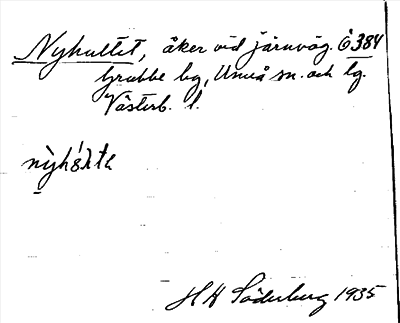 Nyhultet, åker vid järnväg. Ö 384
Grubbe bg, Umeå sn. och tg.
Västerb. l.
H H Söderberg 1935